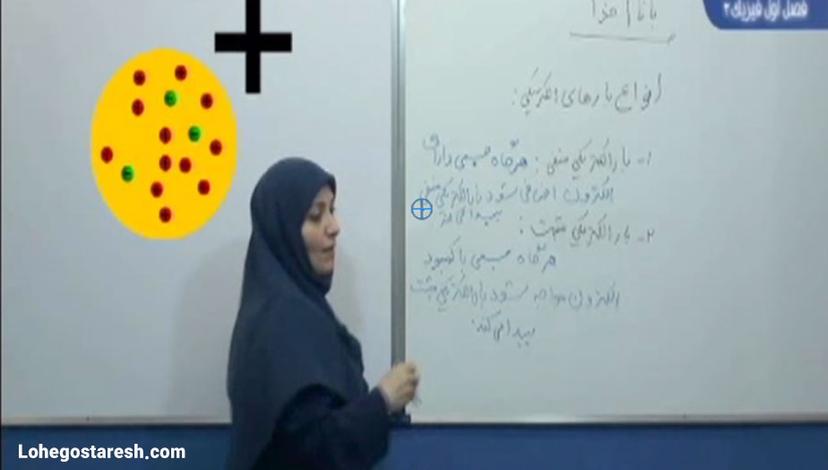 فصل اول فیزیک ۲
بنام خدا
انواع بارهای الکتریکی:
۱- بار الکتریکی منفی: هرگاه جسمی دارای
الکترون اضافی شود بار الکتریکی منفی
پیدا می کند
۲- بار الکتریکی مثبت:
هرگاه جسمی با کمبود
الکترون مواجه شود بار الکتریکی مثبت
پیدا می کند.
Lohegostaresh.com